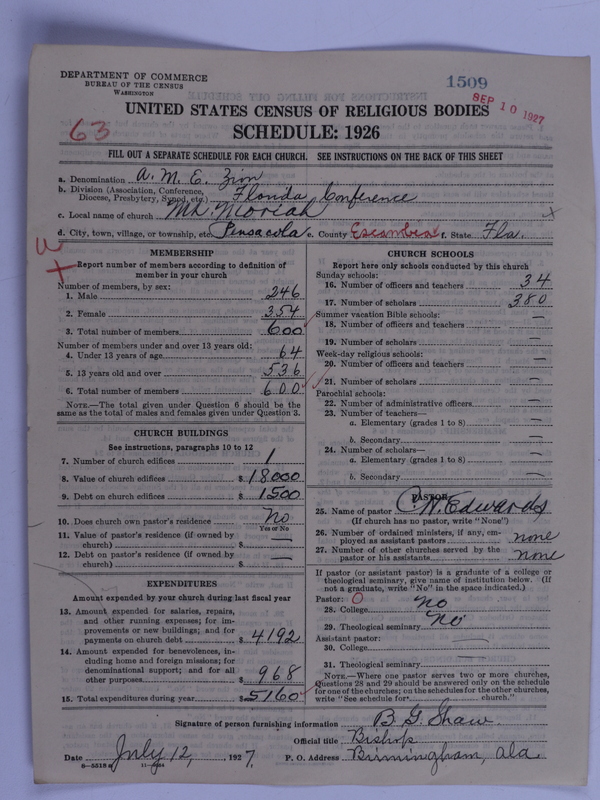 DEPARTMENT OF COMMERCE
BUREAU OF THE CENSUS
WASHINGTON
1509
SEP 10 1927
63
UNITED STATES CENSUS OF RELIGIOUS BODIES
SCHEDULE: 1926
FILL OUT A SEPARATE SCHEDULE FOR EACH CHURCH. SEE INSTRUCTIONS ON THE BACK OF THIS SHEET
a. Denomination A. M. E. Zion
b. Division (Association, Conference, Diocese, Presbytery, Synod, etc.) Florida Conference
c. Local name of church Mt. Moriah
d. City, town, village, or township, etc. Pensacola e. County Escambia f. State Fla.
MEMBERSHIP
Report number of members according to definition of
member in your church
Number of members, by sex:
1. Male 246
2. Female 354
3. Total number of members 600
Number of members under and over 13 years old:
4. Under 13 years of age 64
5. 13 years old and over 536
6. Total number of members 600
NOTE.—The total given under Question 6 should be the
same as the total of males and females given under Question 3.
CHURCH BUILDINGS
See instructions, paragraphs 10 to 12
7. Number of church edifices 1
8. Value of church edifices $ 18000
9. Debt on church edifices $ 1500
10. Does church own pastor's residence No
Yes or No
11. Value of pastor's residence (if owned by
church) $ —
12. Debt on pastor's residence (if owned by
church) $ —
EXPENDITURES
Amount expended by your church during last fiscal year
13. Amount expended for salaries, repairs,
and other running expenses; for im-
provements or new buildings; and for
payments on church debt $ 4192
14. Amount expended for benevolences, in-
cluding home and foreign missions; for
denominational support; and for all
other purposes $ 968
15. Total expenditures during year $ 5160
CHURCH SCHOOLS
Report here only schools conducted by this church
Sunday schools:
16. Number of officers and teachers 34
17. Number of scholars 380
Summer vacation Bible schools:
18. Number of officers and teachers —
19. Number of scholars —
Week-day religious schools:
20. Number of officers and teachers —
21. Number of scholars —
Parochial schools:
22. Number of administrative officers —
23. Number of teachers—
a. Elementary (grades 1 to 8) —
b. Secondary —
24. Number of scholars—
a. Elementary (grades 1 to 8) —
b. Secondary —
PASTOR
25. Name of pastor C. W. Edwards
(If church has no pastor, write "None")
26. Number of ordained ministers, if any, em-
ployed as assistant pastors none
27. Number of other churches served by the
pastor or his assistants none
If pastor (or assistant pastor) is a graduate of a college or
theological seminary, give name of institution below. (If
not a graduate, write "No" in the space indicated.)
Pastor: O
28. College No
29. Theological seminary No
Assistant pastor:
30. College —
31. Theological seminary —
NOTE.—Where one pastor serves two or more churches,
Questions 28 and 29 should be answered only on the schedule
for one of the churches; on the schedules for the other churches,
write "See schedule for church."
Signature of person furnishing information B. G. Shaw
Official title Bishop
Date July 12, 1927, P. O. Address Birmingham, Ala